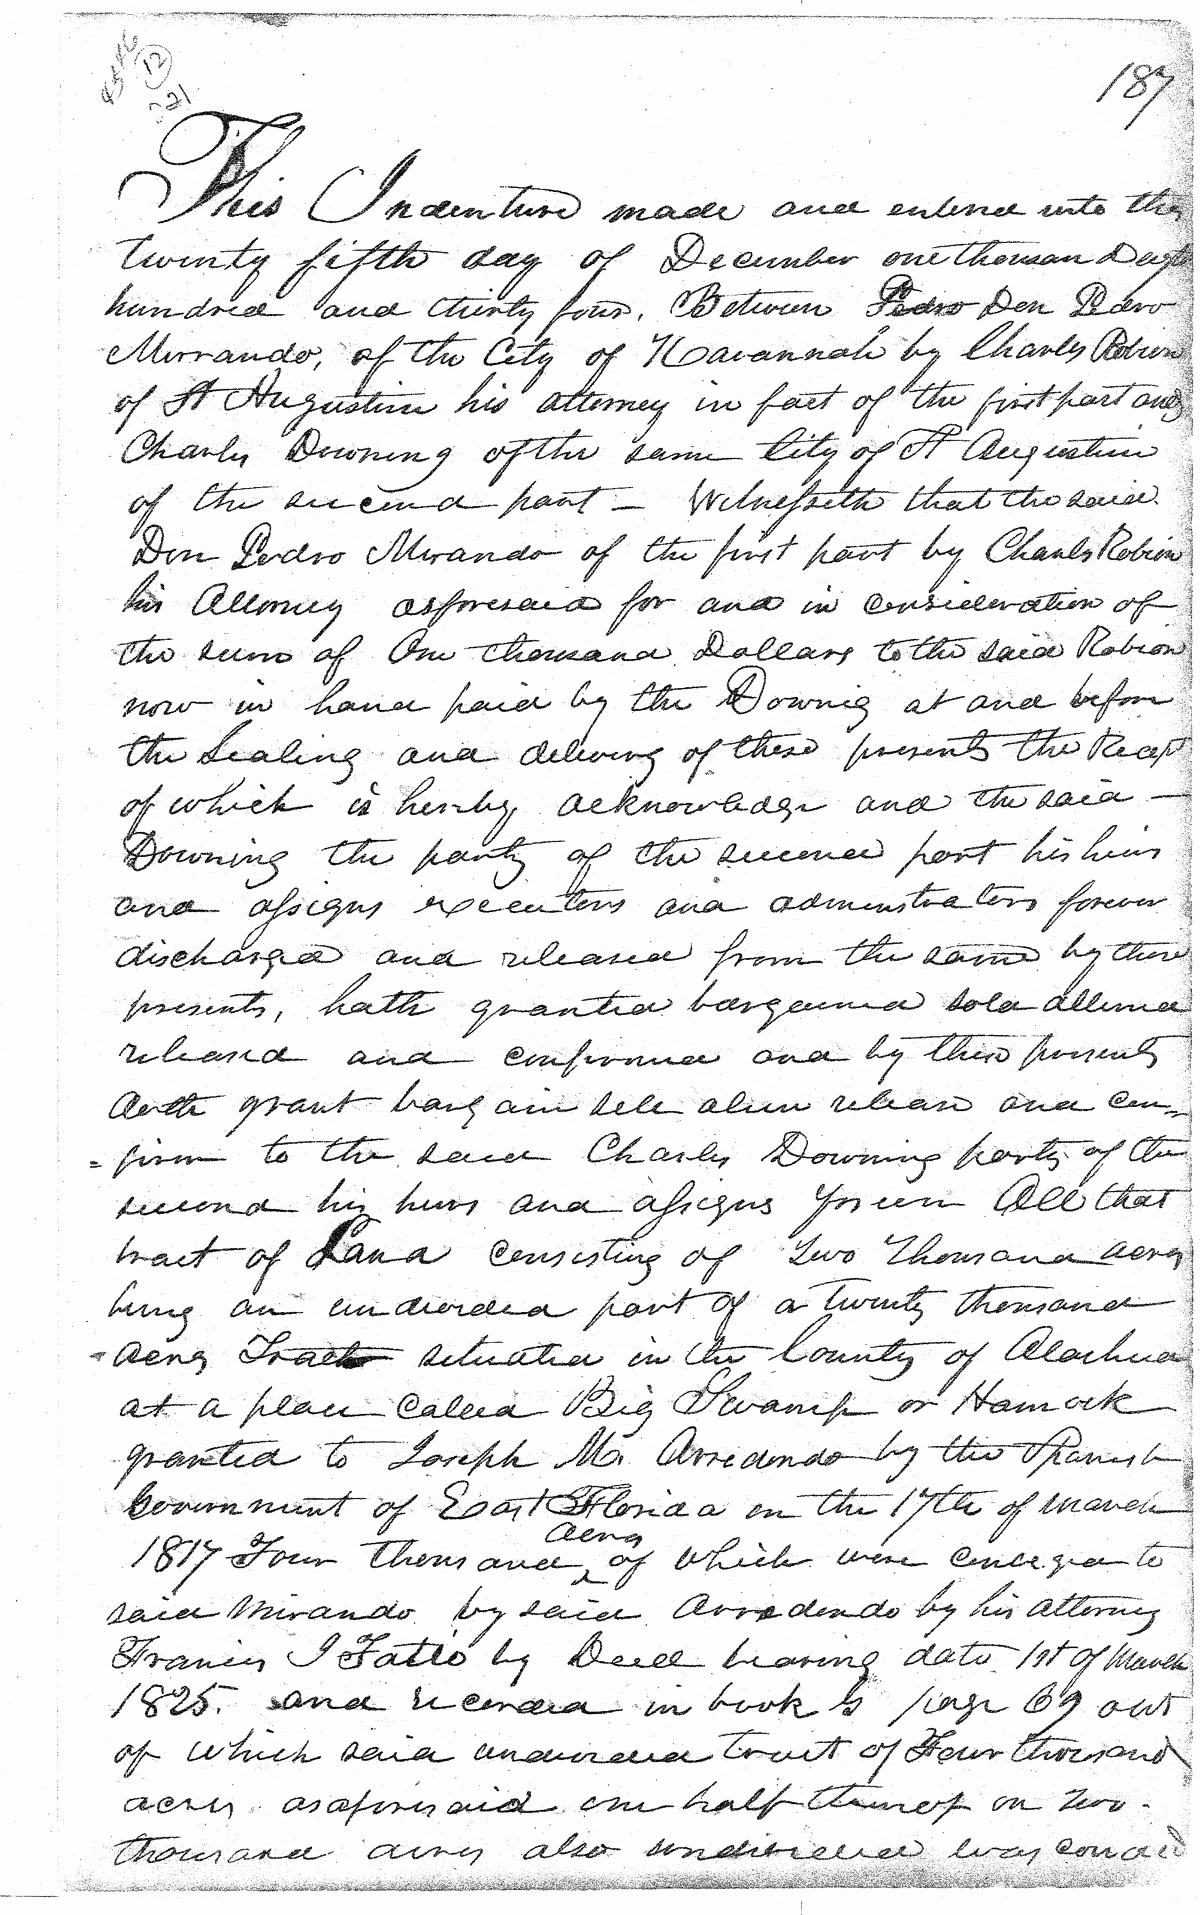 12
221
187
This Indenture made and entered into this
twenty fifth day of December one thousand Eight
hundred and thirty four, Between Pedro Don Pedro
Mirrando, of the City of Havannah by Charles Robion
of St Augustine his attorney in fact of the first part and
Charles Downing of the same City of St Augustine
of the second part — Witnesseth that the said
Don Pedro Mirando of the first part by Charles Robion
his Attorney asforesaid for and in consideration of
the sum of One thousand Dollars to the said Robion
now in hand paid by the Downig at and before
the Sealing and delivirg of these presents the Recept
of which is hereby acknowledge and the said —
Downing the party of the second part his heirs
and assigns executors and adminstrators forever
discharged and released from the same by these
presents, hath granted bargained sold aliened
released and confirmed and by these presents
doth grant bargain sell alien release and con=
=firm to the said Charles Downing party of the
second his heirs and assigns forever All that
tract of Land consisting of Two Thousand acres
being an undivided part of a twenty thousand
acres Tract situated in the County of Alachua
at a place called Big Swamp or Hamock
granted to Joseph M. Arredondo by the Spanish
Government of East Florida on the 17th of March
1817 Four thousand acres of which were conveyed to
said Mirando by said Arredondo by his attorney
Francis J Fatio by Deed bearing date 1st of March
1825. and recorded in book page 69 out
of which said undivided tract of Four thousand
acres asaforesaid one half thereof or Two
thousand acres also undivided was